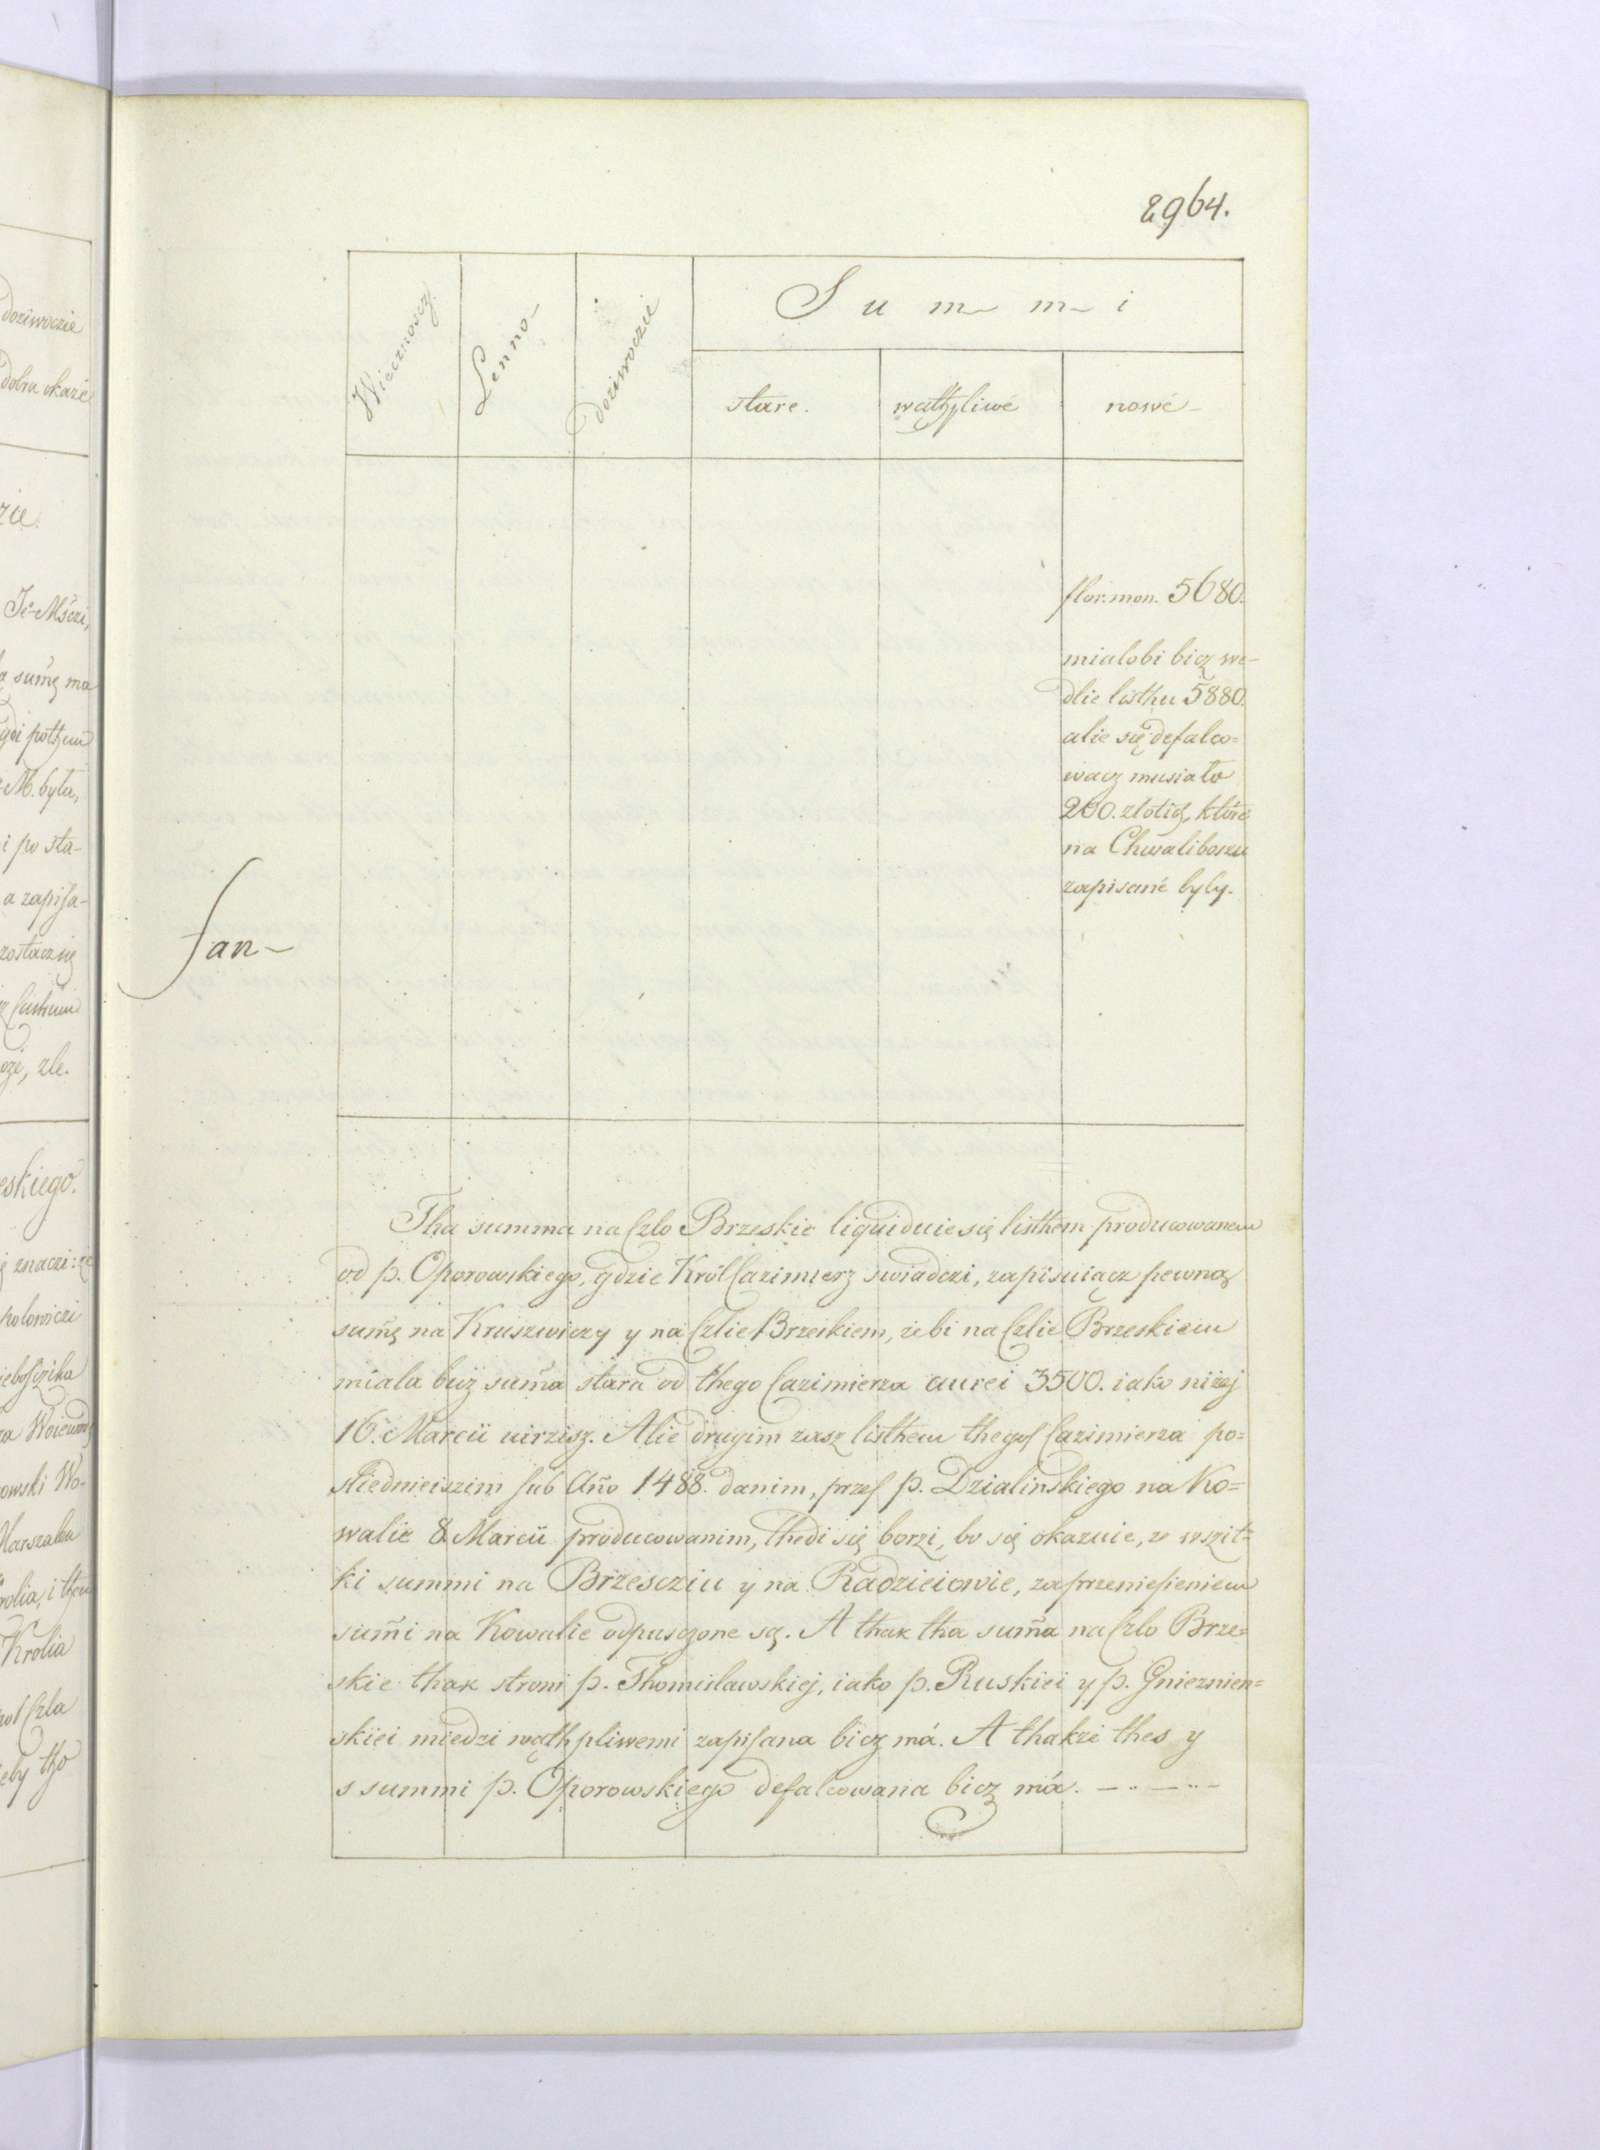 2964.
Wiecznoscz.
Lenno-
doziwoczie
Summi
stare.
wąthpliwé
nowé-
flor. mon. 5680.
mialobi bicz we-
dlie listhu 5880.
alie się defalco=
wacz musiało
200. złotich, któré
na Chwaliboszu
zapisané były.
San-
Tha summa na Czlo Brzeskie liquiduie się listhem producowanem
od p. Oporowskiego, gdzie Król Cazimierz swiadczi, zapisuiącz pewną
sum̃ę na Kruszwiczy y na Czlie Brzeskiem, żebi na Czlie Brzeskiem
miala bicz sum̃a stara od thego Cazimierza aurei 3500. iako niżej
16. Marcii uirzisz. Alie drugim zasz listhem thegoſ Cazimierza po=
sliednieiszim sub Año 1488. danim, przeſ p. Dzialinskiego na Ko=
walie 8 Marcii producowanim, thedi się borzi, bo się okazuie, że wszit=
ki summi na Brzescziu y na Radzieiowie, za przeniesieniem
sum̃i na Kowalie odpusczone są. A thak tha sum̃a na Czlo Brze=
skie thak stroni p. Thomislawskiej, iako p. Ruskiei y p. Gnieznien=
skiei miedzi wąthpliwemi zapisana bicz má. A thakże thes y
s summi p. Oporowskiego defalcowana bicz má.
doziwoczie
dobra okazie
Je Mśczi,
sum̃ę ma
M. była,
i po sta-
a zapiſa-
zostacz się
zle.
eskiego.
znaczi: że
polowiczi
za Woiewod
owski Wo-
Marszałka
Krolia